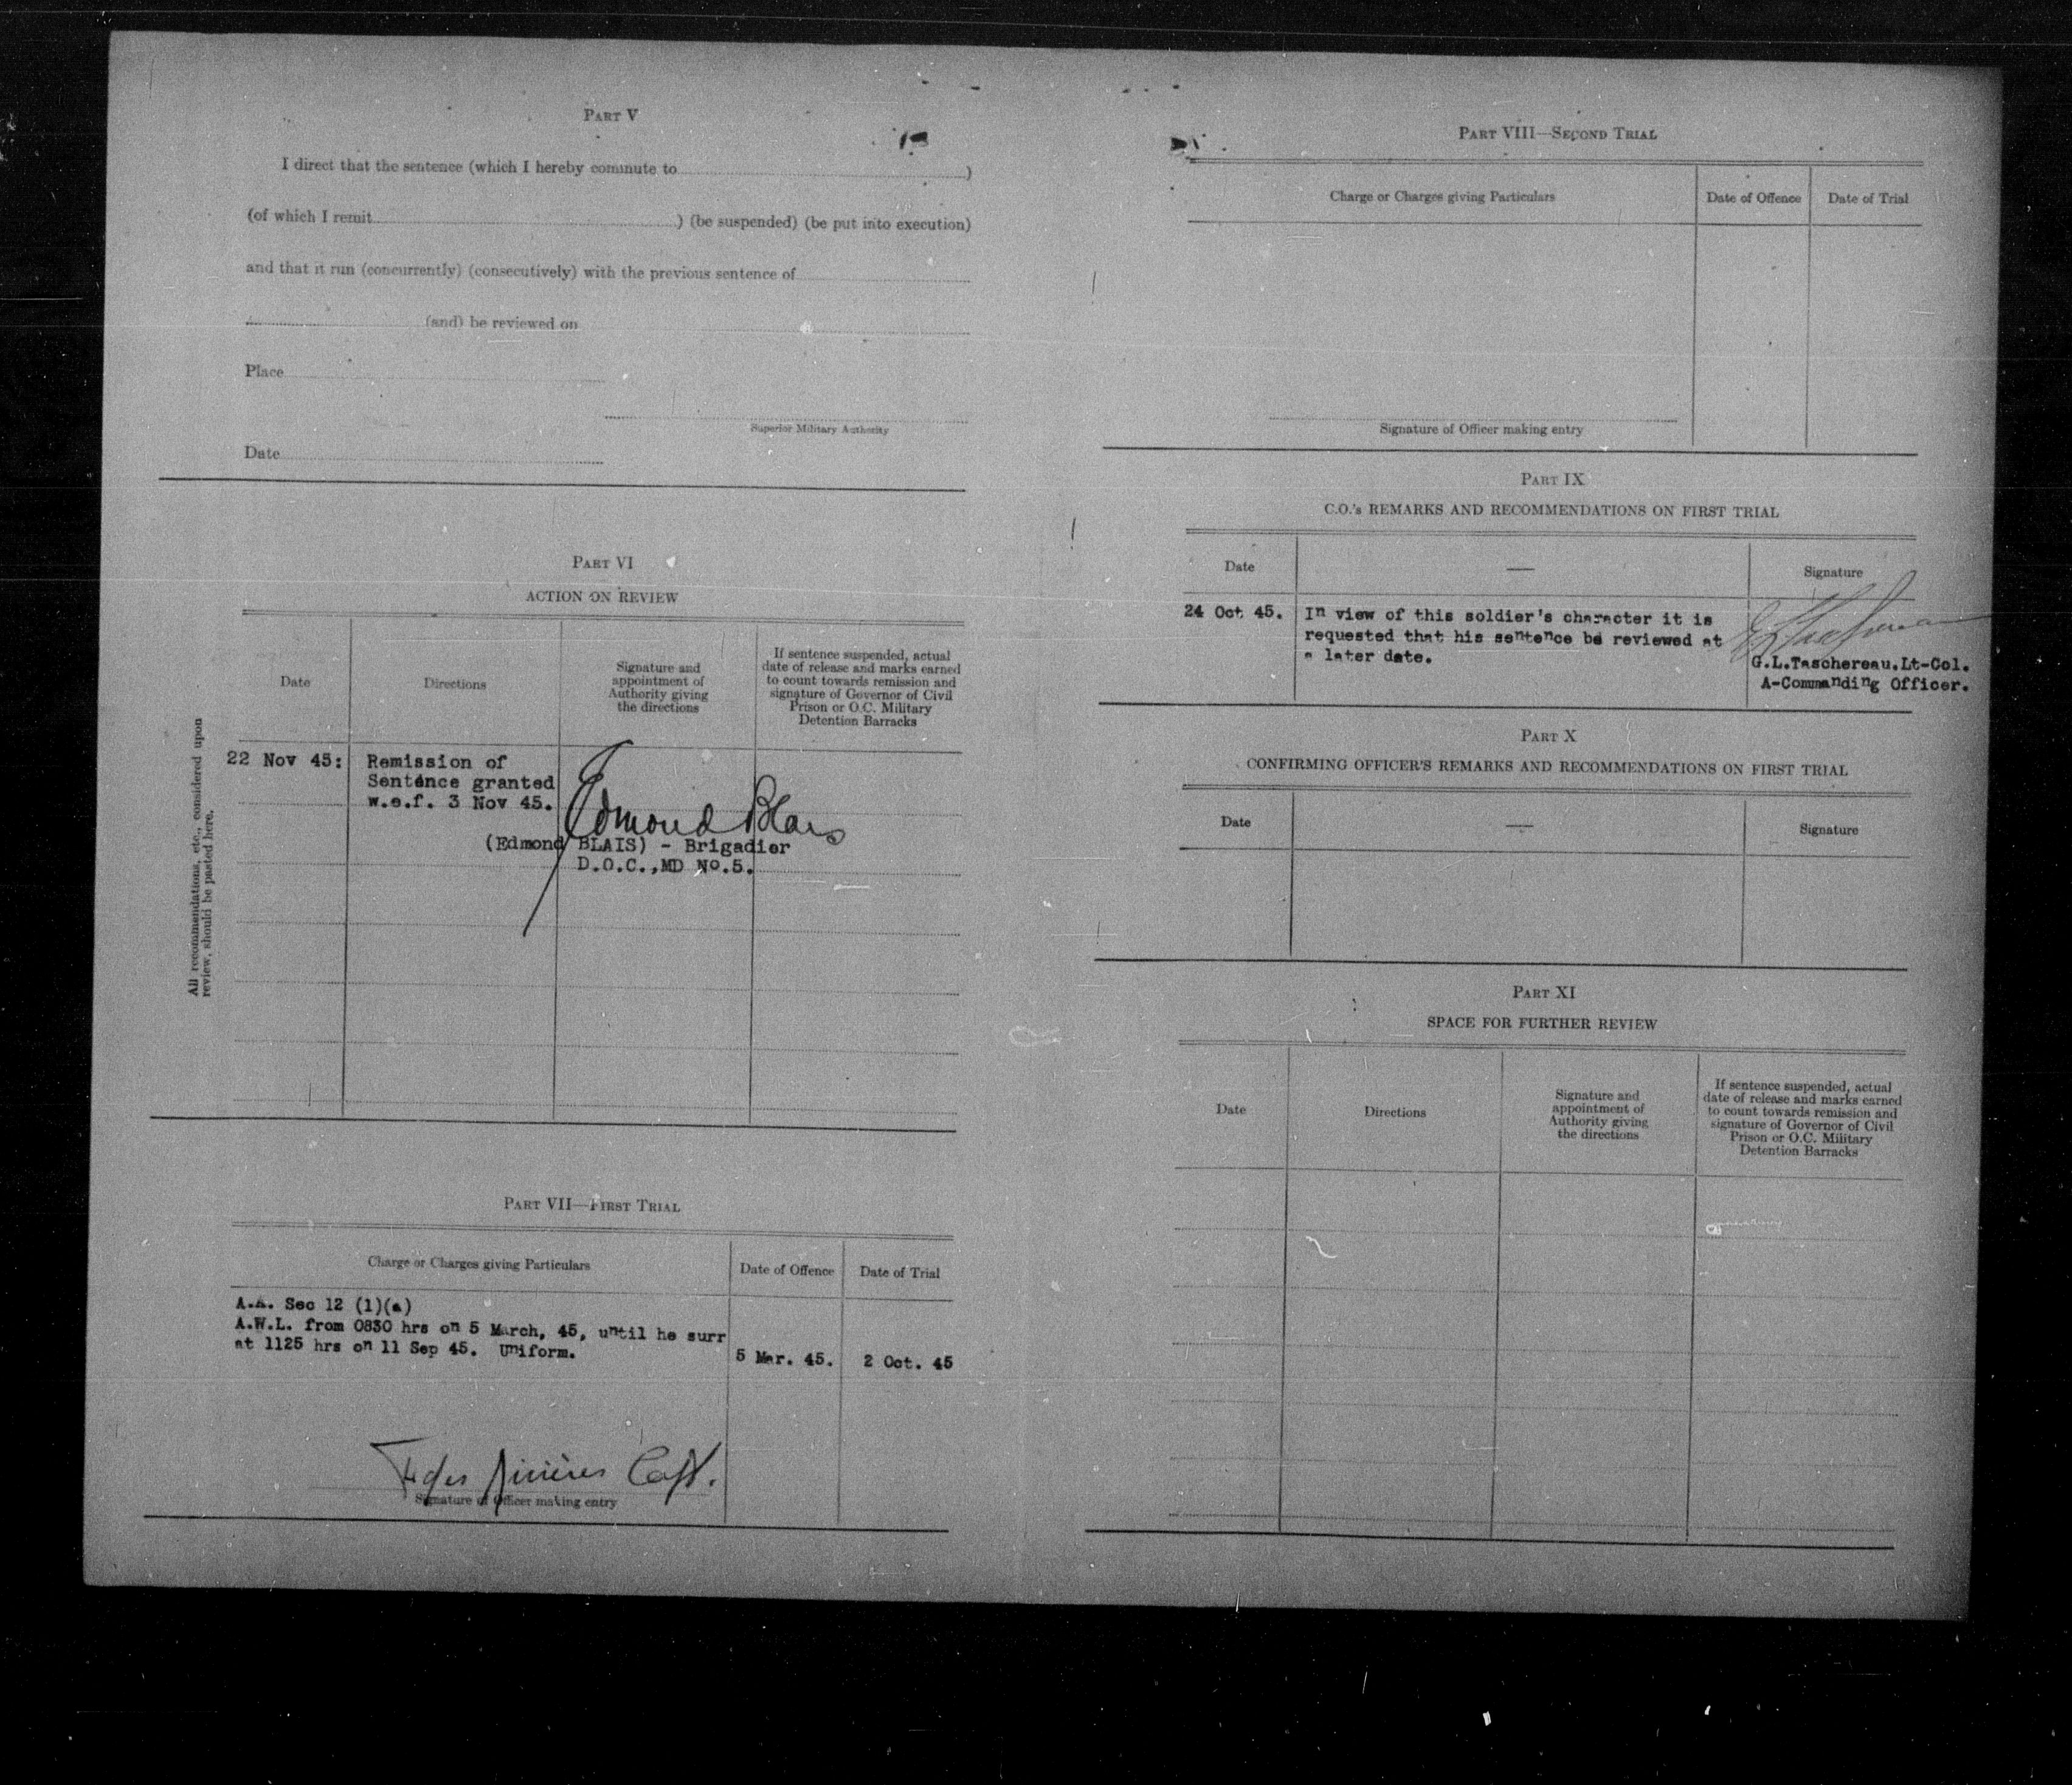 PART V
I direct that the sentence (which I hereby commute to )
(of which I remit ) (be suspended) (be put into execution)
and that it run (concurrently) (consecutively) with the previous sentence of
(and) be reviewed on
Place
Superior Military Authority
Date
PART VI
ACTION ON REVIEW
All recommendations, etc., considered upon
review, should be pasted here.
Date
Directions
Signature and
appointment of
Authority giving
the directions
If sentence suspended, actual
date of release and marks earned
to count towards remission and
signature of Governor of Civil
Prison or O.C. Military
Detention Barracks
22 Nov 45:
Remission of
Sentence granted
w.e.f. 3 Nov 45.
Edmond Blais
(Edmond BLAIS) - Brigadier
D.O.C.,MD No.5.
PART VII—FIRST TRIAL
Charge or Charges giving Particulars
Date of Offence
Date of Trial
A.A. Sec 12 (1)(a)
A.W.L. from 0830 hrs on 5 March, 45, until he surr
at 1125 hrs on 11 Sep 45. Uniform.
5 Mar. 45.
2 Oct. 45
Capt.
Signature of Officer making entry
PART VIII—SECOND TRIAL
Charge or Charges giving Particulars
Date of Offence
Date of Trial
Signature of Officer making entry
PART IX
C.O.'s REMARKS AND RECOMMENDATIONS ON FIRST TRIAL
Date
—
Signature
24 Oct 45.
In view of this soldier's character it is
requested that his sentence be reviewed at
a later date.
G.L.Taschereau.Lt-Col.
A-Commanding Officer.
PART X
CONFIRMING OFFICER'S REMARKS AND RECOMMENDATIONS ON FIRST TRIAL
Date
—
Signature
PART XI
SPACE FOR FURTHER REVIEW
Date
Directions
Signature and
appointment of
Authority giving
the directions
If sentence suspended, actual
date of release and marks earned
to count towards remission and
signature of Governor of Civil
Prison or O.C. Military
Detention Barracks